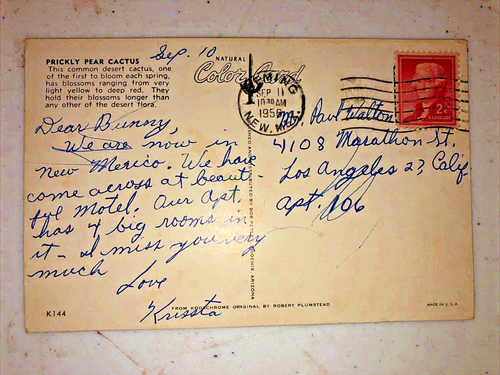 Sep. 10
PRICKLY PEAR CACTUS
This common desert cactus, one
of the first to bloom each spring,
has blossoms ranging from very
light yellow to deep red. They
hold their blossoms longer than
any other of the desert flora.
NATURAL
Color Card
DEMING
SEP 11
10:30 AM
1956
NEW. MEX.
2¢
Dear Bunny,
We are now in
New Mexico. We have
come across at beaut-
ful Motel. Our Apt.
has 4 big rooms in
it - I miss you very
much
Love
Krissta
Mr. Paul Walton
4108 Marathon St.
Los Angeles 27, Calif.
apt. 106
PHOENIX, ARIZONA
K144
FROM KODACHROME ORIGINAL BY ROBERT PLUMSTEAD
MADE IN U.S.A.